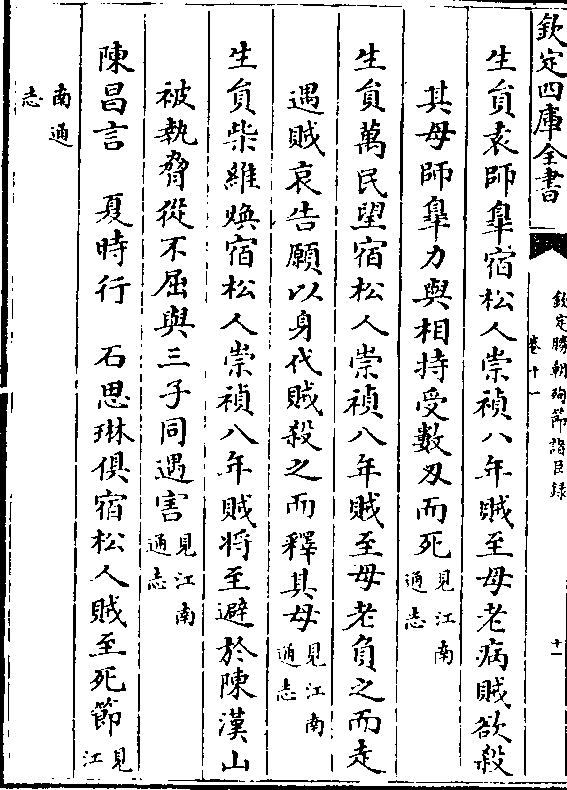 欽定四庫全書
欽定勝朝殉節諸臣錄
卷十一
十一
生員袁師皐宿松人崇禎八年賊至母老病賊欲殺
其母師皐力與相持受數刃而死見江南通志
生員萬民望宿松人崇禎八年賊至母老負之而走
遇賊哀告願以身代賊殺之而釋其母見江南通志
生員柴維煥宿松人崇禎八年賊將至避於陳漢山
被執脅從不屈與三子同遇害見江南通志
陳昌言　夏時行　石思琳俱宿松人賊至死節見江
南通志